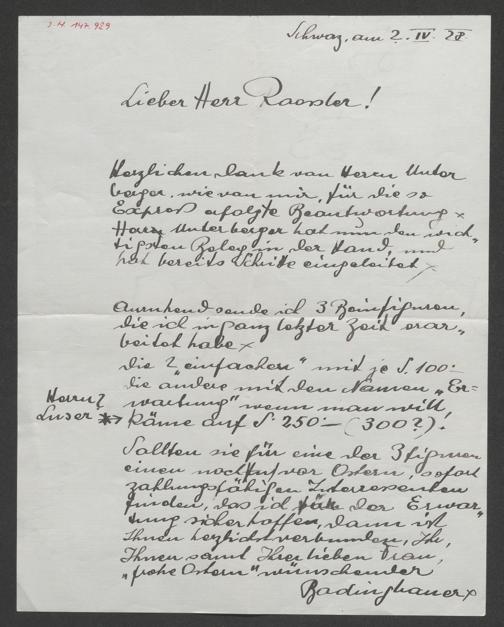 J.N. 147.929
Schwaz, am 2. IV. 28.
Lieber Herr Roessler!
Herzlichen Dank von Herrn Unter
berger, wie von mir, für die so
Expreß erfolgte Beantwortung x
Herrn Unterberger hat nun den wich„
tigsten Beleg in der Hand, und
hat bereits Schritte eingeleitet x
Anruhend sende ich 3 Beinfiguren,
die ich in ganz letzter Zeit erar„
beitet habe x
die 2 „einfachen" mit je S. 100.-
die andere mit den Namen „Er=
wartung" wenn man will,
Herrn?
Luser
käme auf S. 250.— (300?)!
Sollten sie für eine der 3 figuren
einen noch vor Ostern, sofort
zahlungsfähigen Interressenten
finden, das ich der Erwar„
tung sicher hoffen, dann ist
Ihnen herzlichst verbunden, Ihr,
Ihnen samt Ihrer lieben Frau,
„frohe Ostern" wünschender